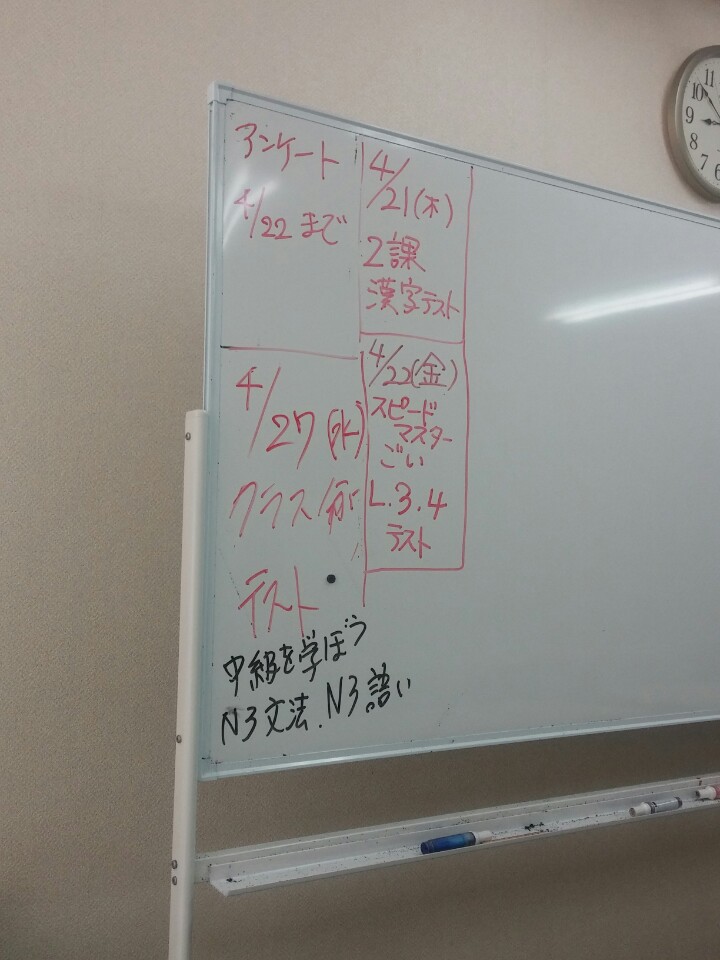 アンケート
4/22 まで
4/21(木)
2課
漢字テスト
4/27(水)
クラス分け
テスト
4/22(金)
スピード
マスター
ごい
L.3.4
テスト
中級を学ぼう
N3文法.N3語い
11
10
9
8
7
6